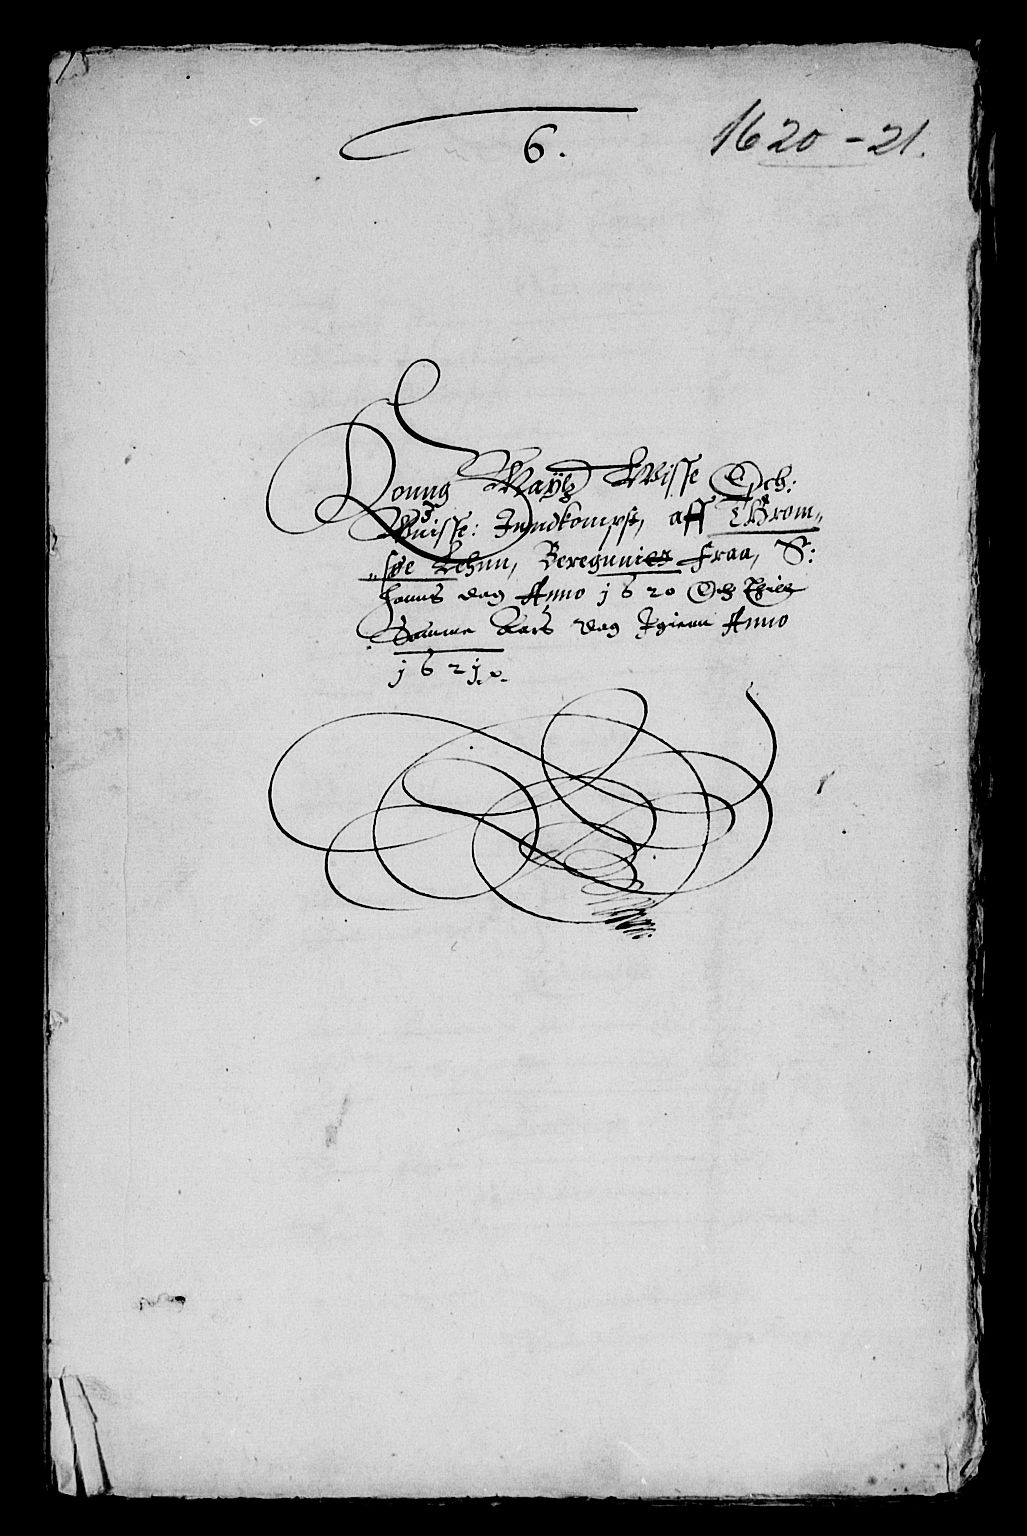 6.
1620-21.
Konng Maÿtz Wisse Och:
Vuisse: Inndkompst, aff Brom„
„søe Lehnn, Beregnnitt Fraa, S:
hanns dag Anno 1620 Och Thill
Samme Aars dag Igienn Anno
1621.